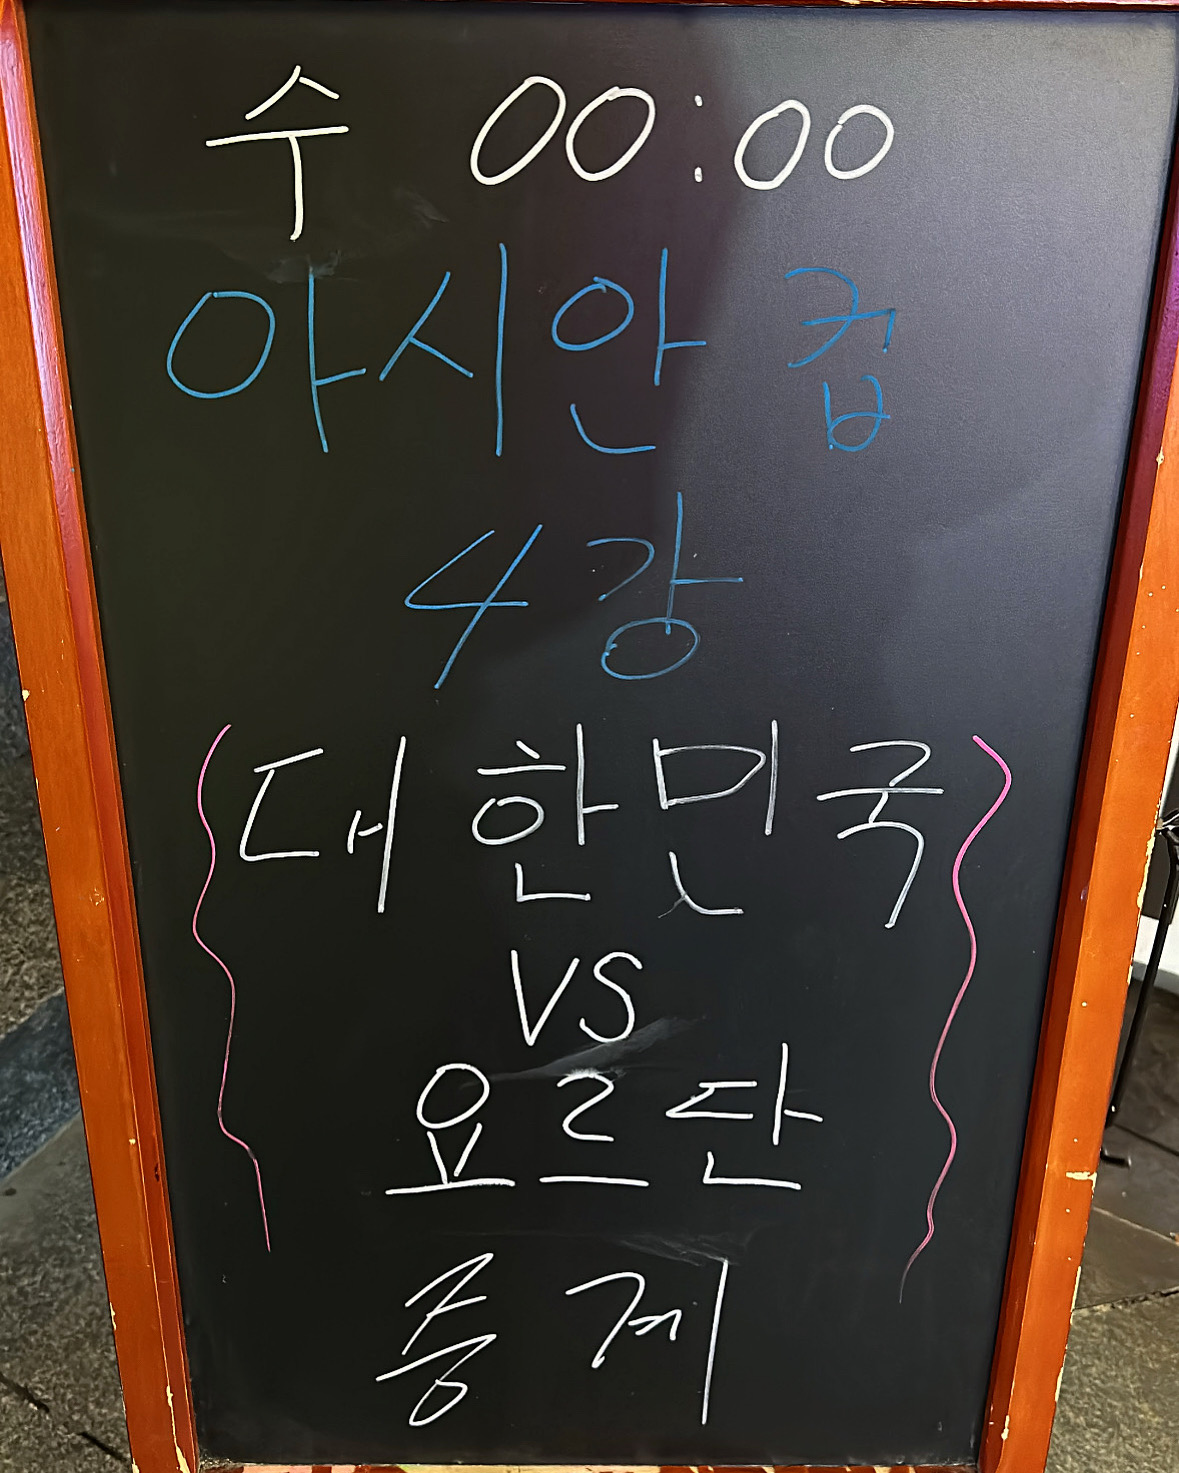 수 00:00
아시안 컵
4강
대한민국
VS
요르단
중계